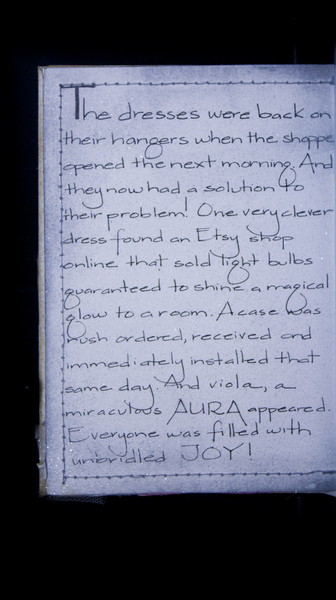 The dresses were back on
their hangers when the shoppe
opened the next morning. And
they now had a solution to
their problem! One very clever
dress found an Etsy shop
online that sold light bulbs
guaranteed to shine a magical
glow to a room. A case was
rush ordered, received and
immediately installed that
same day. And viola, a
miraculous AURA appeared.
Everyone was filled with
unbridled JOY!